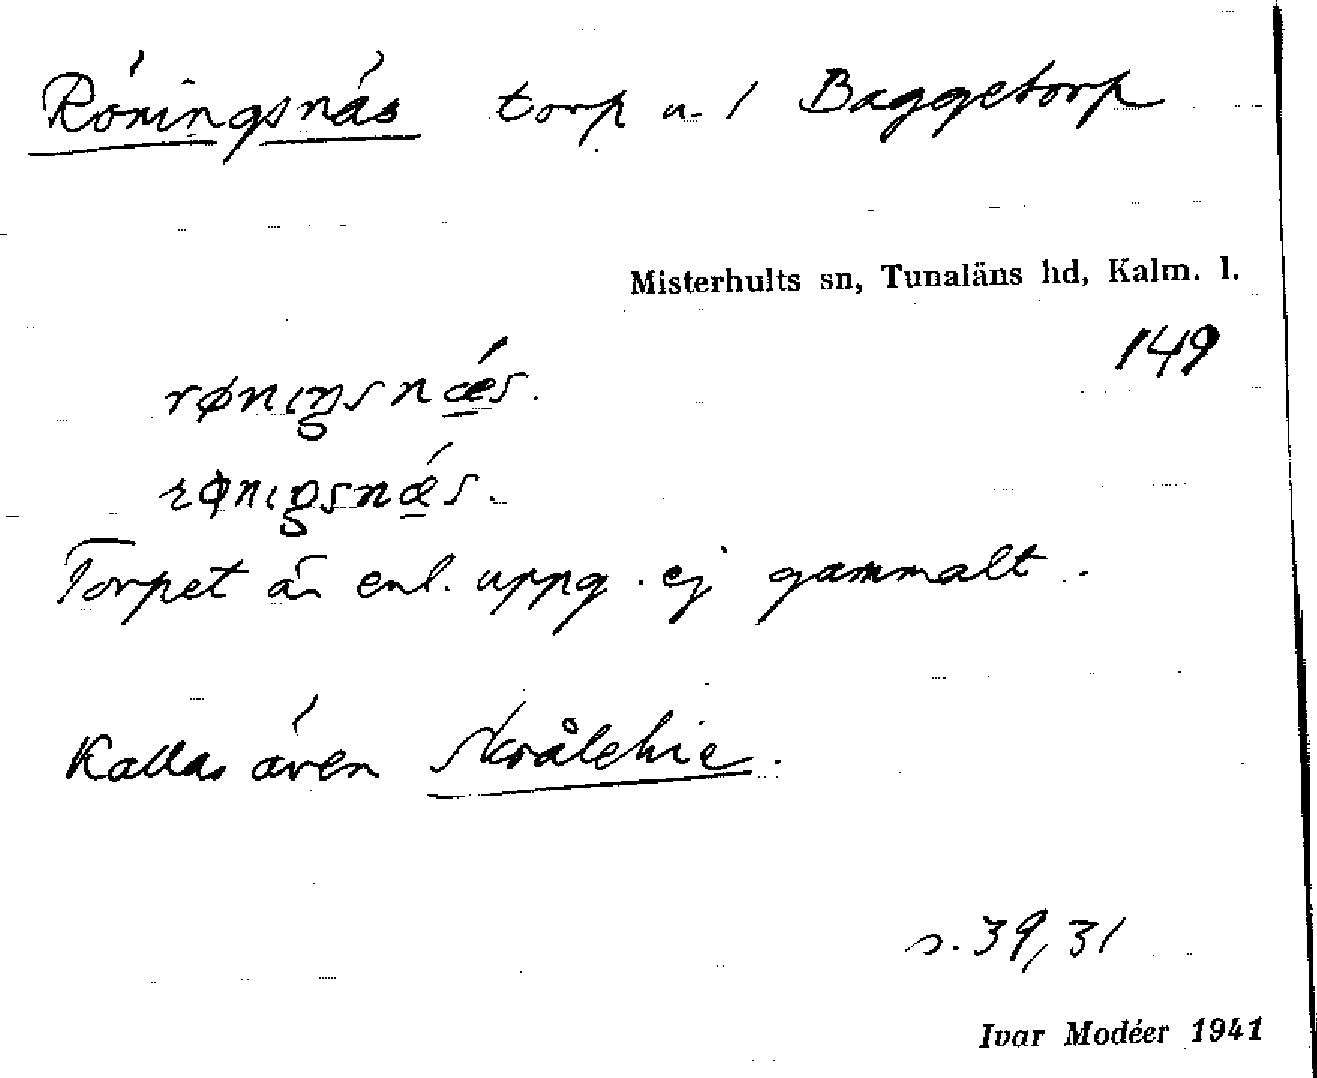 Röningsnäs torp u. / Baggetorp
Misterhults sn, Tunaläns hd, Kalm. l.
149
Torpet är enl. uppg. ej gammalt.
Kallas även Skrålehie.
s. 39, 31
Ivar Modéer 1941